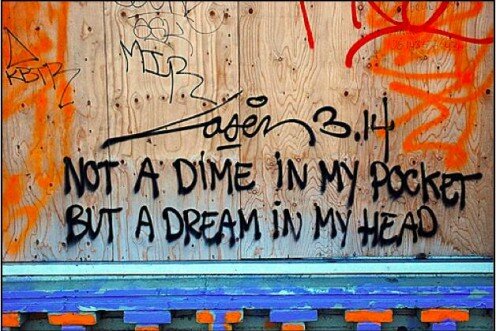 KBTR
MIR
Laser 3.14
NOT A DIME IN MY POCKET
BUT A DREAM IN MY HEAD